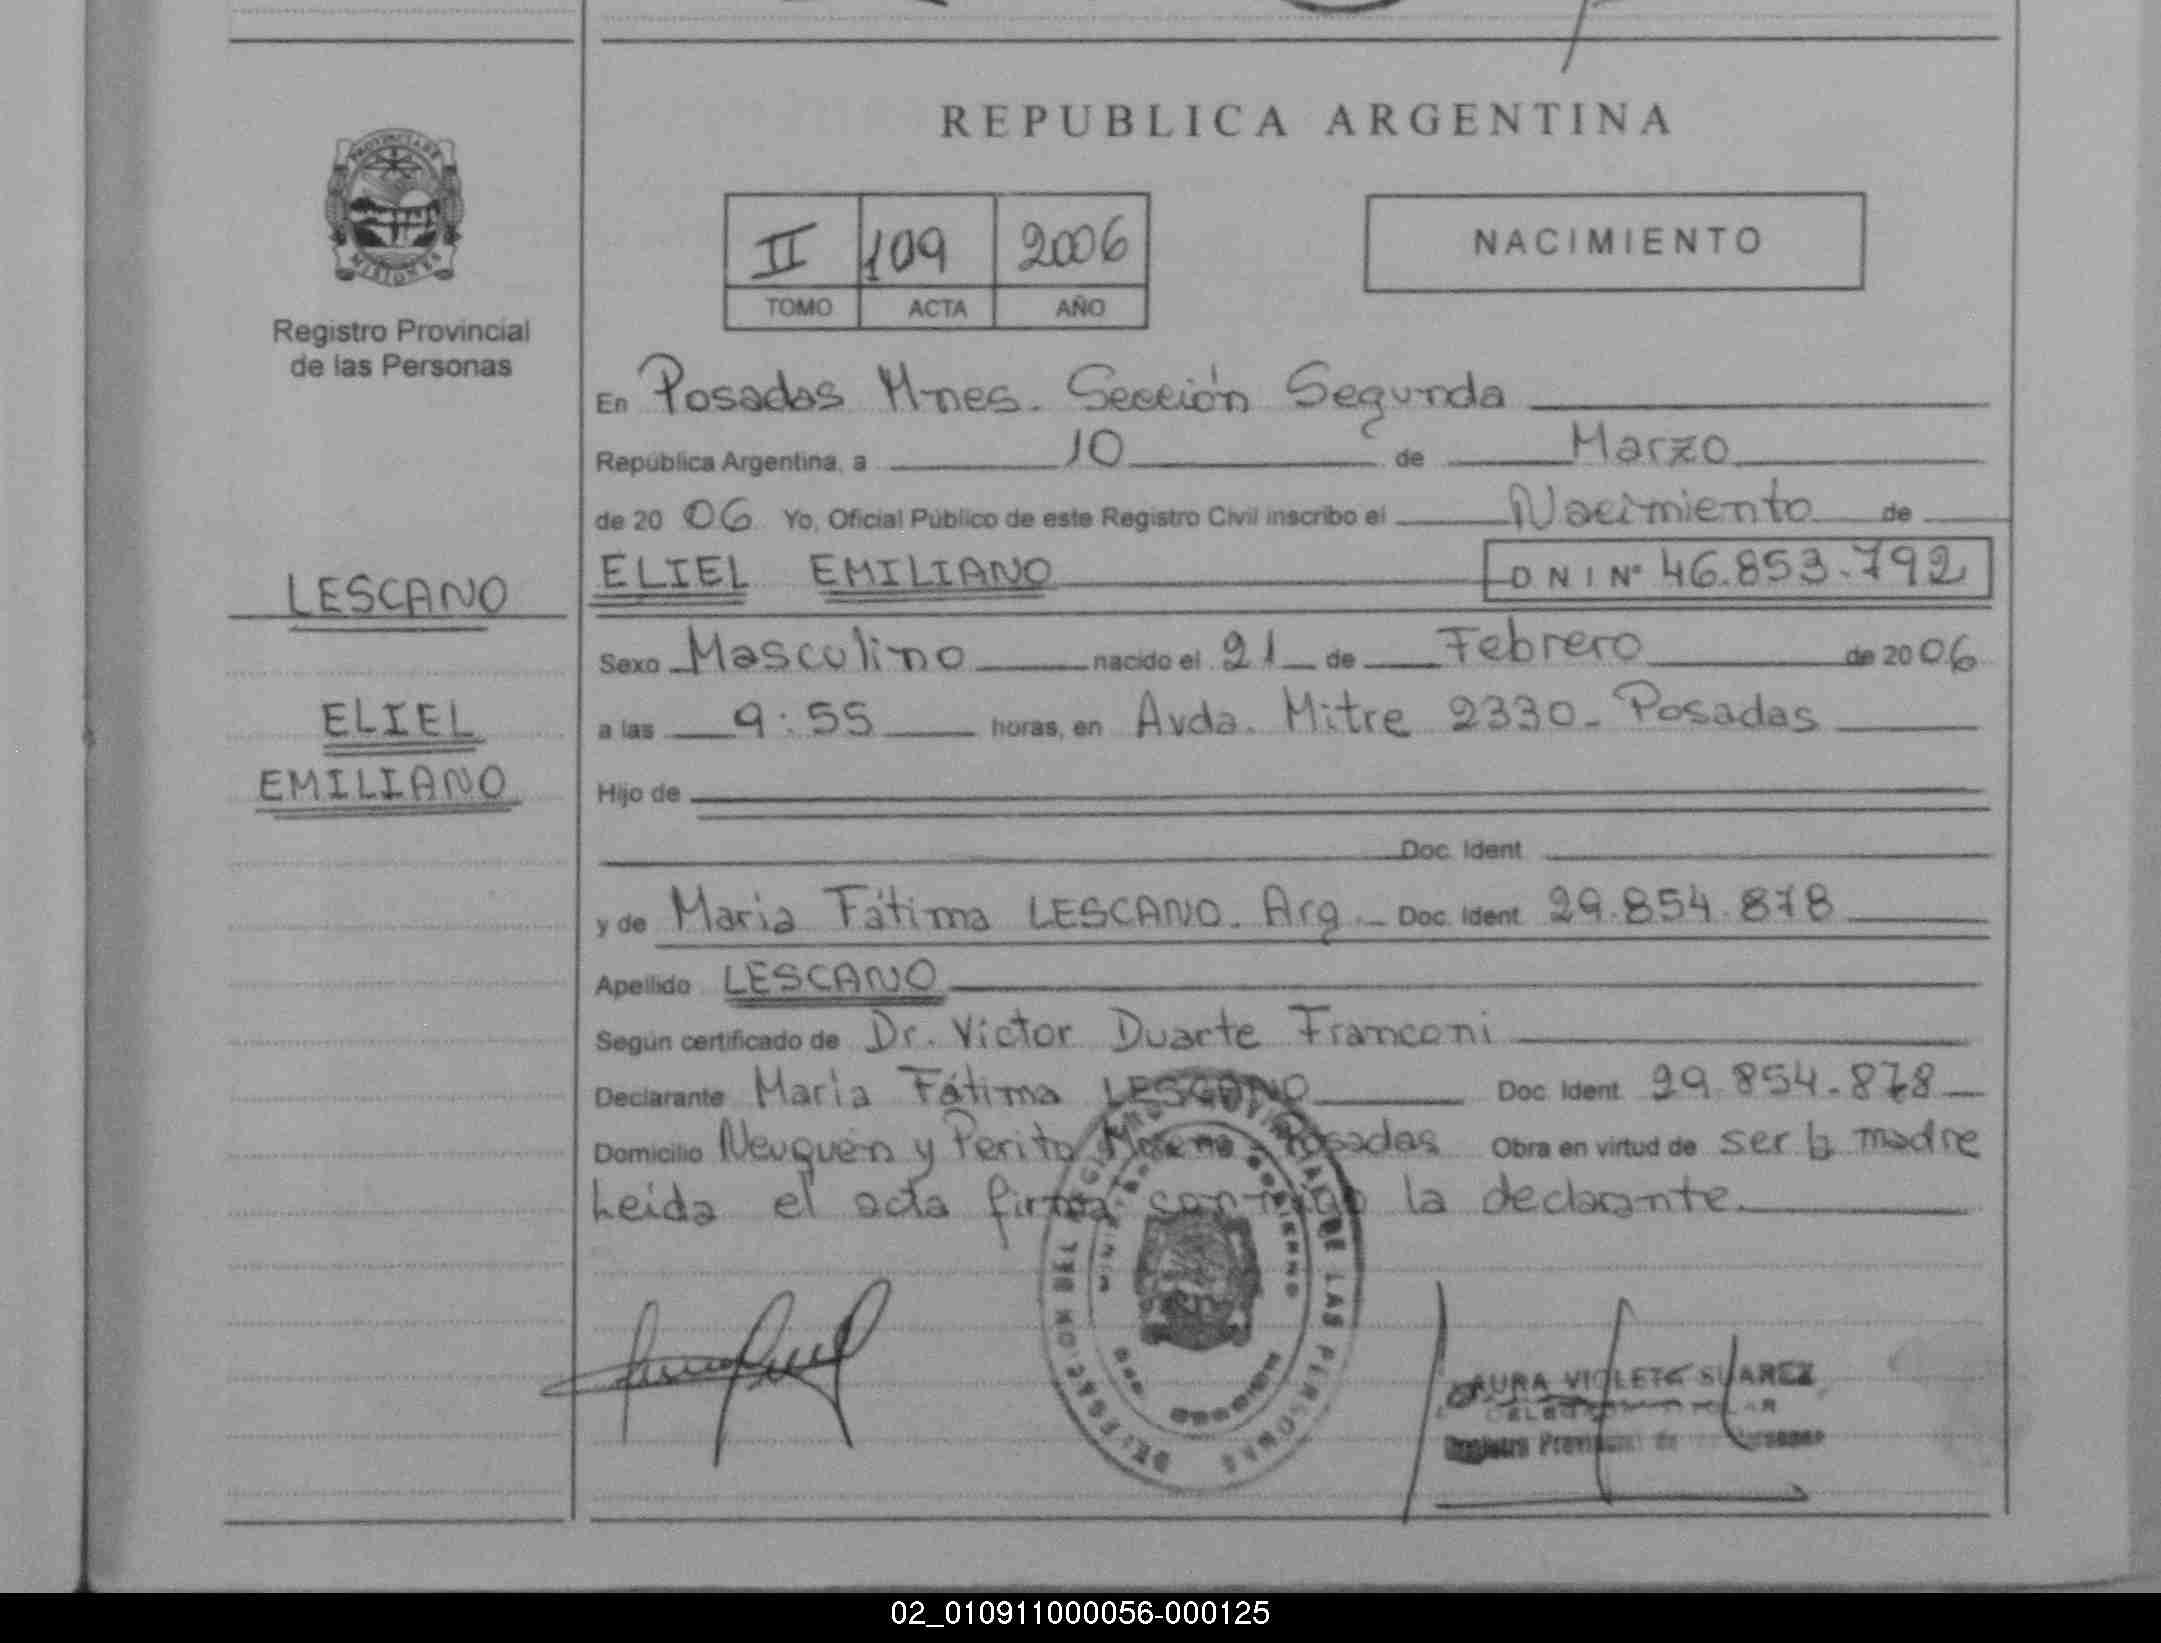 REPUBLICA ARGENTINA
PROVINCIA DE
MISIONES
Registro Provincial
de las Personas
II 109 2006
TOMO ACTA AÑO
NACIMIENTO
En Posadas Mnes. Sección Segunda
República Argentina, a 10 de Marzo
de 20 06 Yo, Oficial Público de este Registro Civil inscribo el Nacimiento de
ELIEL EMILIANO DNI Nº 46.853.792
LESCANO
ELIEL
EMILIANO
Sexo Masculino nacido el 21 de Febrero de 20 06
a las 9:55 horas, en Avda. Mitre 2330 - Posadas
Hijo de
Doc. Ident.
y de Maria Fátima LESCANO. Arg. Doc. Ident. 29.854.878
Apellido LESCANO
Según certificado de Dr. Victor Duarte Franconi
Declarante Maria Fátima LESCANO Doc. Ident. 29.854.878
Domicilio Neuquén y Perito Moreno - Posadas Obra en virtud de ser la madre
Leida el acta firma conmigo la declarante.
DEL REGISTRO PROVINCIAL DE LAS PERSONAS
LAURA VIOLETA SUAREZ
Registro Provincial de las Personas
02_010911000056-000125